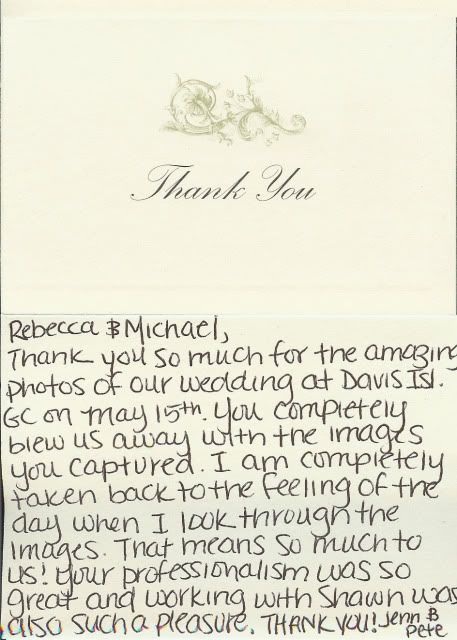 Thank You
Rebecca & Michael,
Thank you so much for the amazing
photos of our wedding at Davis Isl.
GC on may 15th. You completely
blew us away with the images
you captured. I am completely
taken back to the feeling of the
day when I look through the
images. That means so much to
us! Your professionalism was so
great and working with Shawn was
also such a pleasure. THANK YOU! Jenn &
Pete